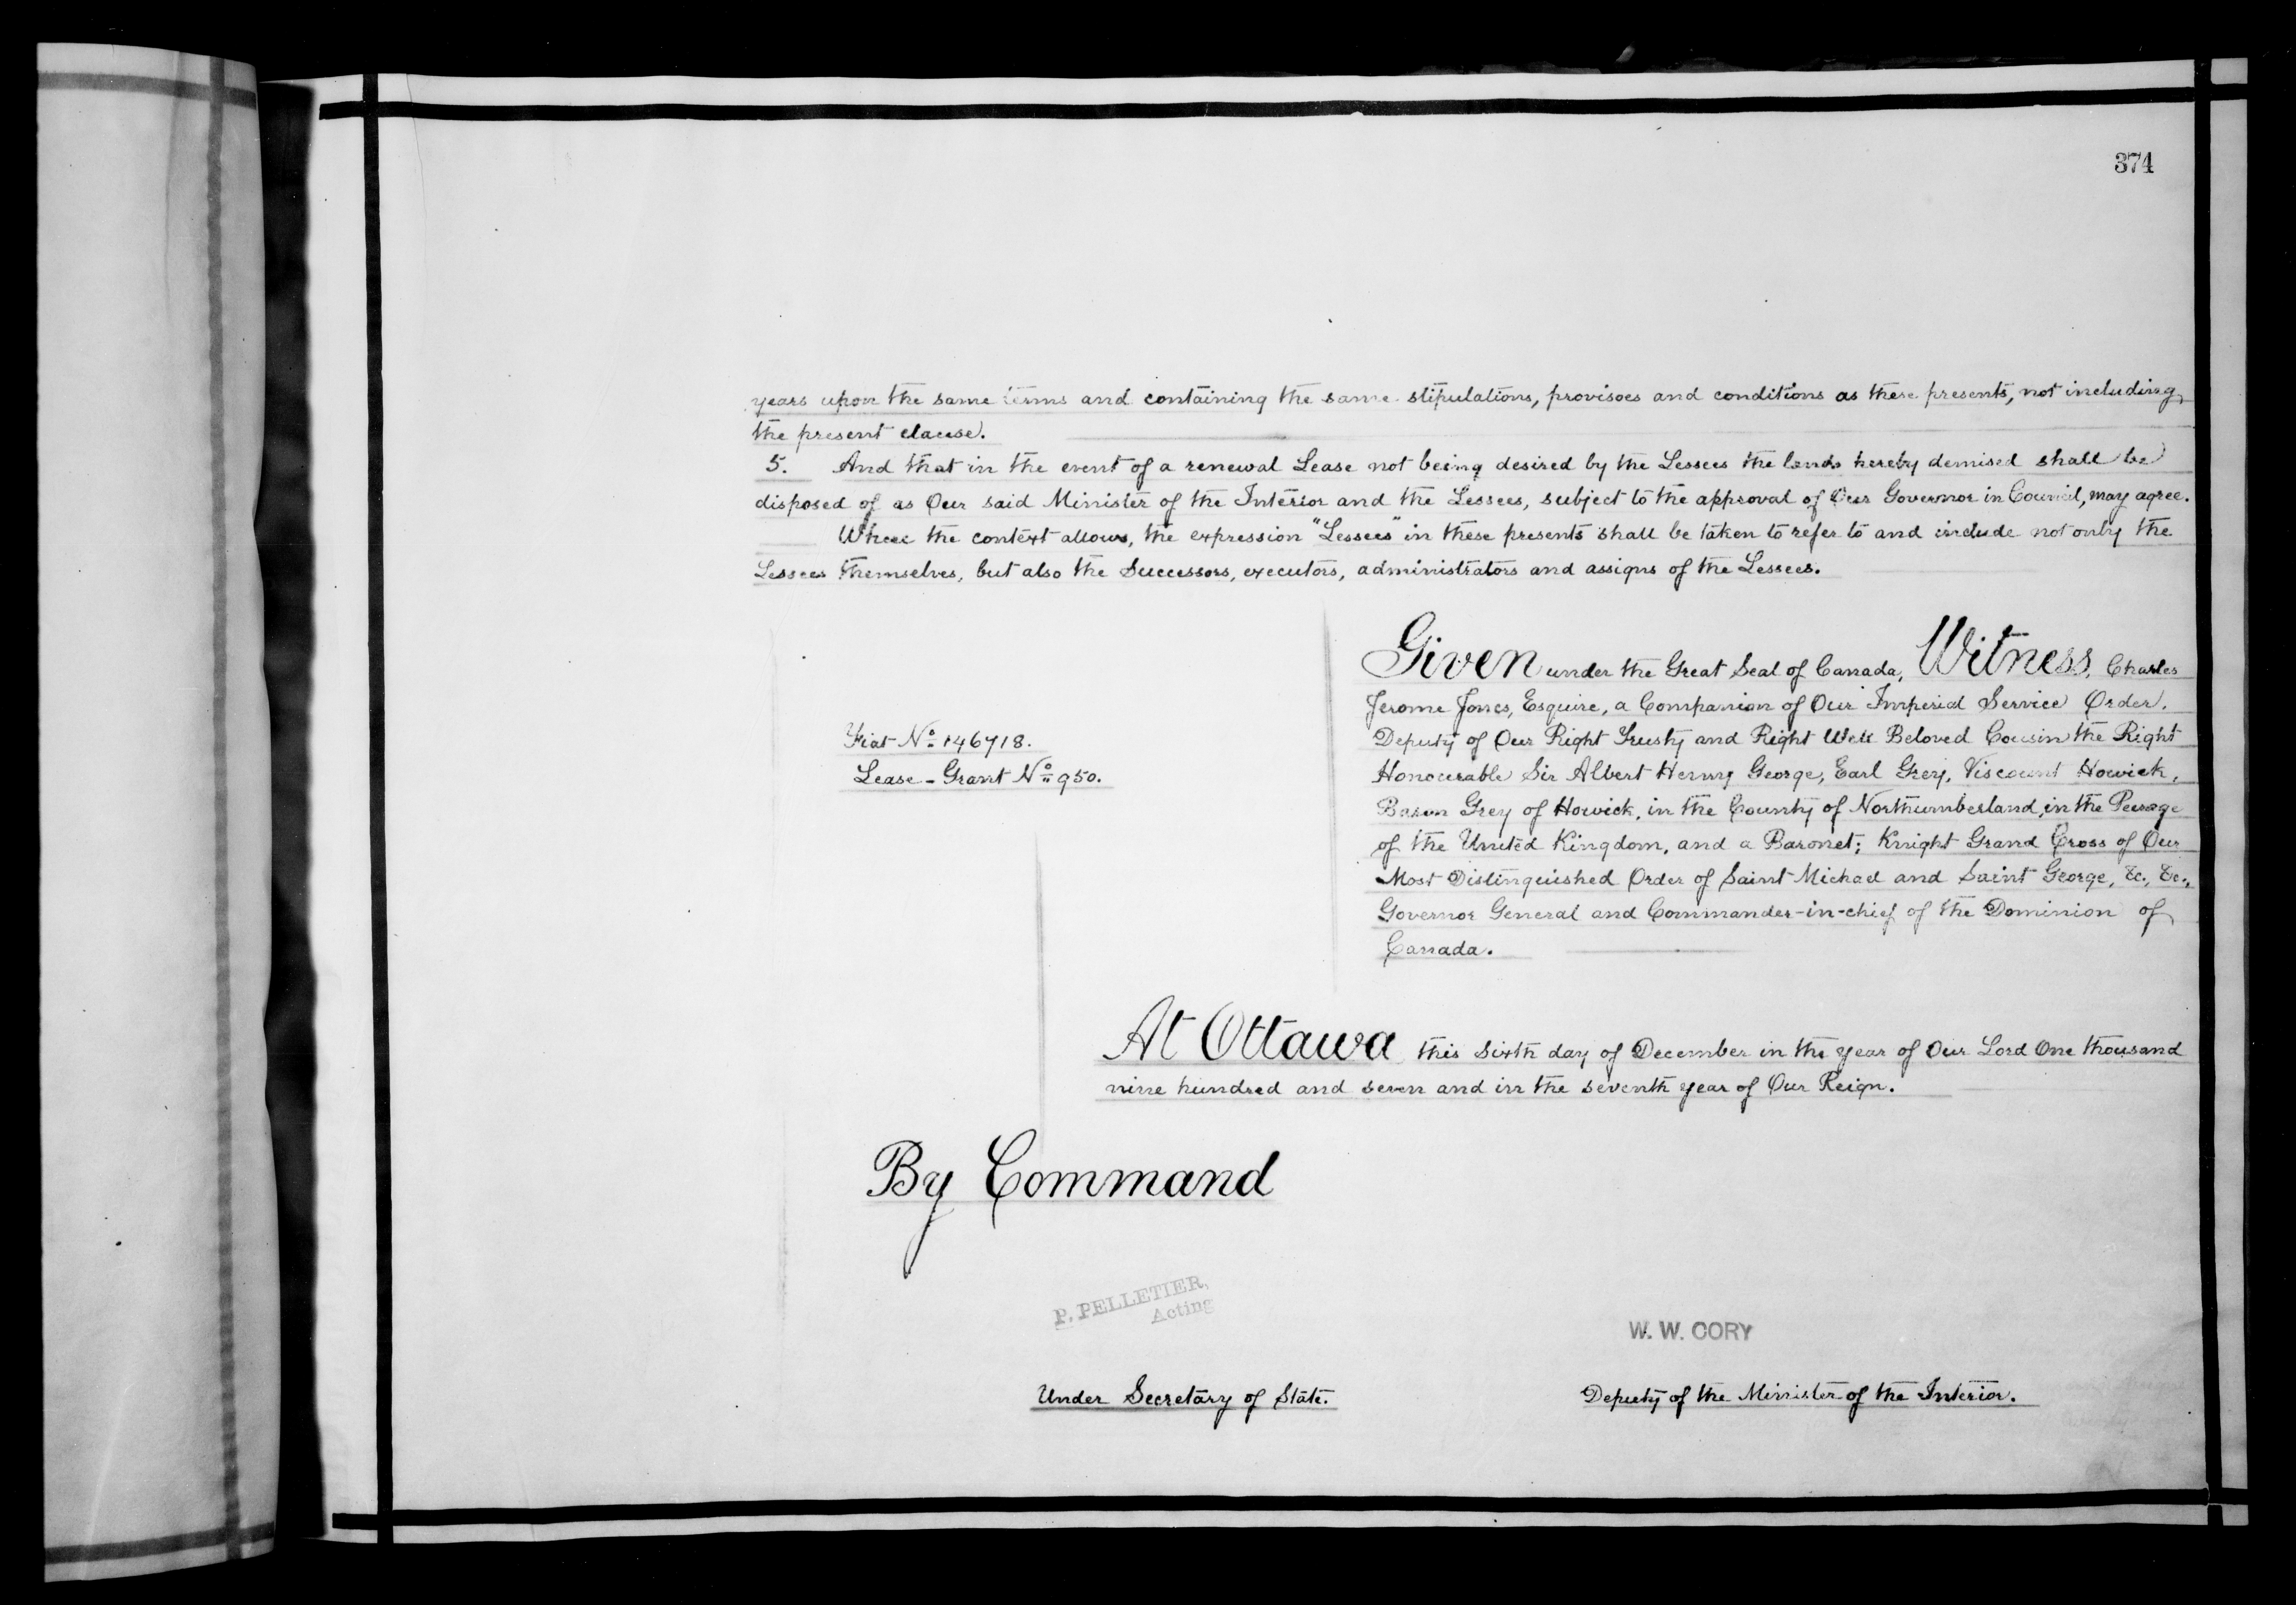 374
years upon the same terms and containing the same stipulations, provisoes and conditions as these presents, not including
the present clause.
5. And that in the event of a renewal Lease not being desired by the Lessees the lands hereby demised shall be
disposed of as Our said Minister of the Interior and the Lessees, subject to the approval of Our Governor in Council, may agree.
Where the context allows, the expression "Lessees" in these presents shall be taken to refer to and include not only the
Lessees themselves, but also the Successors, executors, administrators and assigns of the Lessees.
Given under the Great Seal of Canada, Witness, Charles
Jerome Jones, Esquire, a Companion of Our Imperial Service Order,
Deputy of Our Right Trusty and Right Well Beloved Cousin the Right
Honourable Sir Albert Henry George, Earl Grey, Viscount Howick,
Baron Grey of Howick, in the County of Northumberland, in the Peerage
of the United Kingdom, and a Baronet; Knight Grand Cross of Our
Most Distinguished Order of Saint Michael and Saint George, &c., &c.,
Governor General and Commander-in-chief of the Dominion of
Canada.
Fiat No 146718.
Lease-Grant No 950.
At Ottawa this sixth day of December in the year of Our Lord One thousand
nine hundred and seven and in the seventh year of Our Reign.
By Command
P. PELLETIER,
Acting
W. W. CORY
Under Secretary of State.
Deputy of the Minister of the Interior.